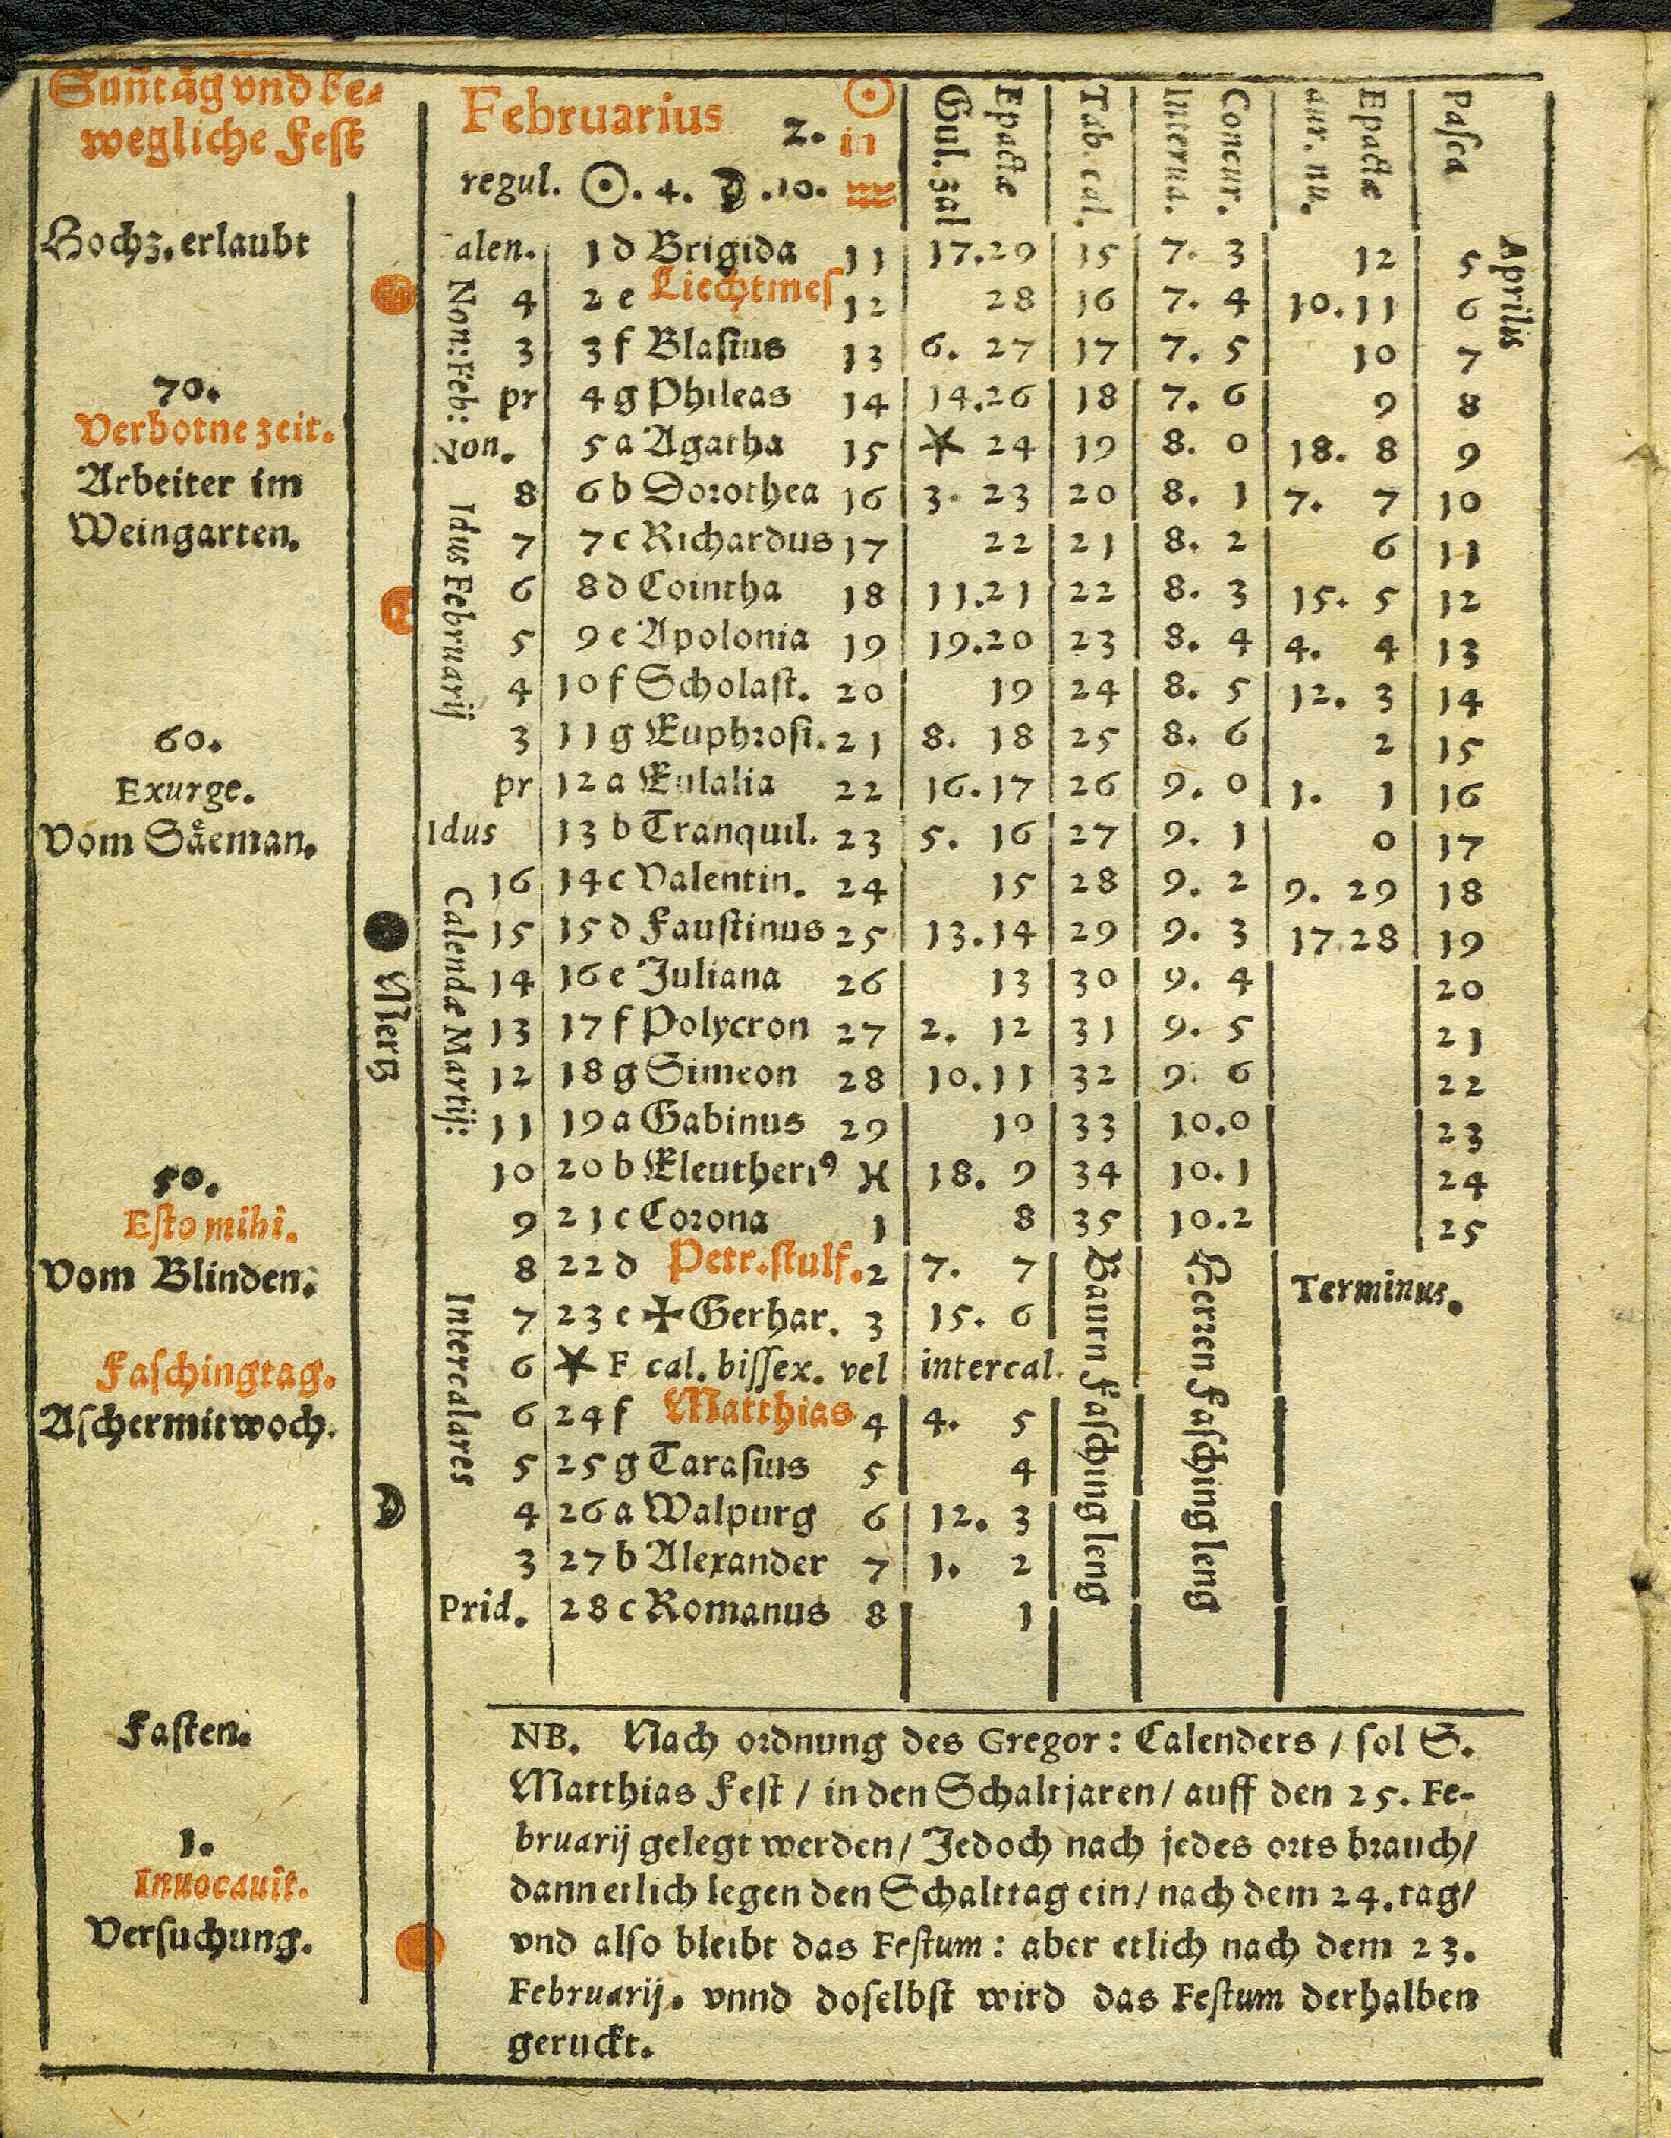 Suñtåg vnd be-
wegliche Fest
Hochz. erlaubt
70.
Verbotne zeit.
Arbeiter im
Weingarten.
60.
Exurge.
Vom Såeman.
50.
Esto mihi.
Vom Blinden.
Faschingtag.
Aschermitwoch.
Fasten.
1.
Inuocauit.
Versuchung.
Mertz
Februarius 2. ☉ in ♒
regul. ☉. 4. ☽. 10.
Gul. zal
Epactæ
Tab. cal.
Interua.
Concur.
aur. nu.
Epactæ
Pasca
Aprilis
Non: Feb:
Idus Februarij
Calendæ Martij:
Intercalares
alen. 1 d Brigida 11 17. 29 15 7. 3 12 5
4 2 e Liechtmes 12 28 16 7. 4 10. 11 6
3 3 f Blasius 13 6. 27 17 7. 5 10 7
pr 4 g Phileas 14 14. 26 18 7. 6 9 8
Non. 5 a Agatha 15 * 24 19 8. 0 18. 8 9
8 6 b Dorothea 16 3. 23 20 8. 1 7. 7 10
7 7 c Richardus 17 22 21 8. 2 6 11
6 8 d Cointha 18 11. 21 22 8. 3 15. 5 12
5 9 e Apolonia 19 19. 20 23 8. 4 4. 4 13
4 10 f Scholast. 20 19 24 8. 5 12. 3 14
3 11 g Euphrosi. 21 8. 18 25 8. 6 2 15
pr 12 a Eulalia 22 16. 17 26 9. 0 1. 1 16
Idus 13 b Tranquil. 23 5. 16 27 9. 1 0 17
16 14 c Valentin. 24 15 28 9. 2 9. 29 18
15 15 d Faustinus 25 13. 14 29 9. 3 17 28 19
14 16 e Juliana 26 13 30 9. 4 20
13 17 f Polycron 27 2. 12 31 9. 5 21
12 18 g Simeon 28 10. 11 32 9. 6 22
11 19 a Gabinus 29 10 33 10. 0 23
10 20 b Eleutheriꝰ ♓ 18. 9 34 10. 1 24
9 21 c Corona 1 8 35 10. 2 25
8 22 d Petr. stulf. 2 7. 7 Terminus.
7 23 e ✠ Gerhar. 3 15. 6
6 * F cal. bissex. vel intercal.
6 24 f Matthias 4 4. 5
5 25 g Tarasius 5 4
4 26 a Walpurg 6 12. 3
3 27 b Alexander 7 1. 2
Prid. 28 c Romanus 8 1
Baurn Fasching leng
Herren Fasching leng
NB. Nach ordnung des Gregor: Calenders / sol S.
Matthias Fest / in den Schaltjaren / auff den 25. Fe-
bruarij gelegt werden / Jedoch nach jedes orts brauch /
dann etlich legen den Schalttag ein / nach dem 24. tag /
vnd also bleibt das Festum: aber etlich nach dem 23.
Februarij. vnnd doselbst wird das Festum derhalben
geruckt.